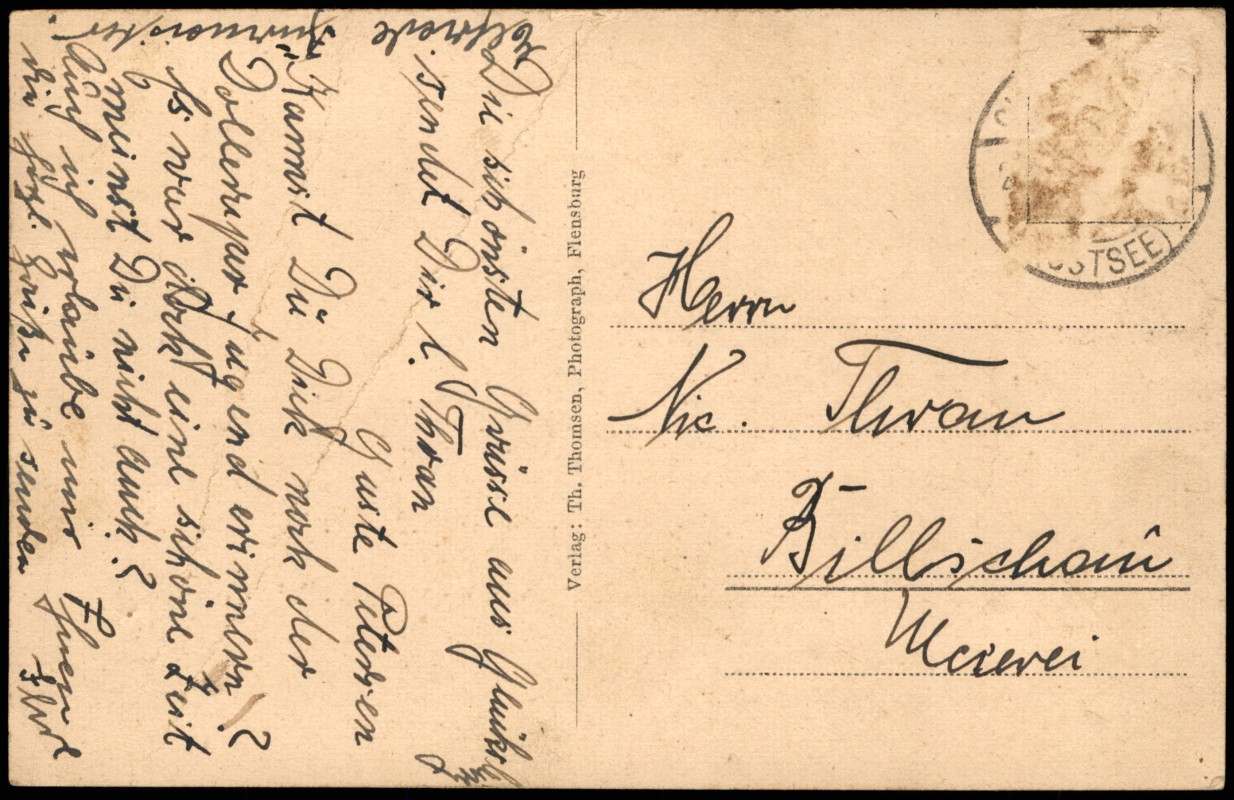 Die schönsten Grüsse aus
sendet Dir l. Thran
Guste Petersen
Kannst Du Dich noch der
Dolleruper Jugend erinnern?
Es war doch eine schöne Zeit
meinst Du nicht auch?
Auch ich erlaube mir Ihnen
die Grüße zu senden
Verlag: Th. Thomsen, Photograph, Flensburg
(OSTSEE)
Herrn
Nic. Thran
Billschau
Meierei